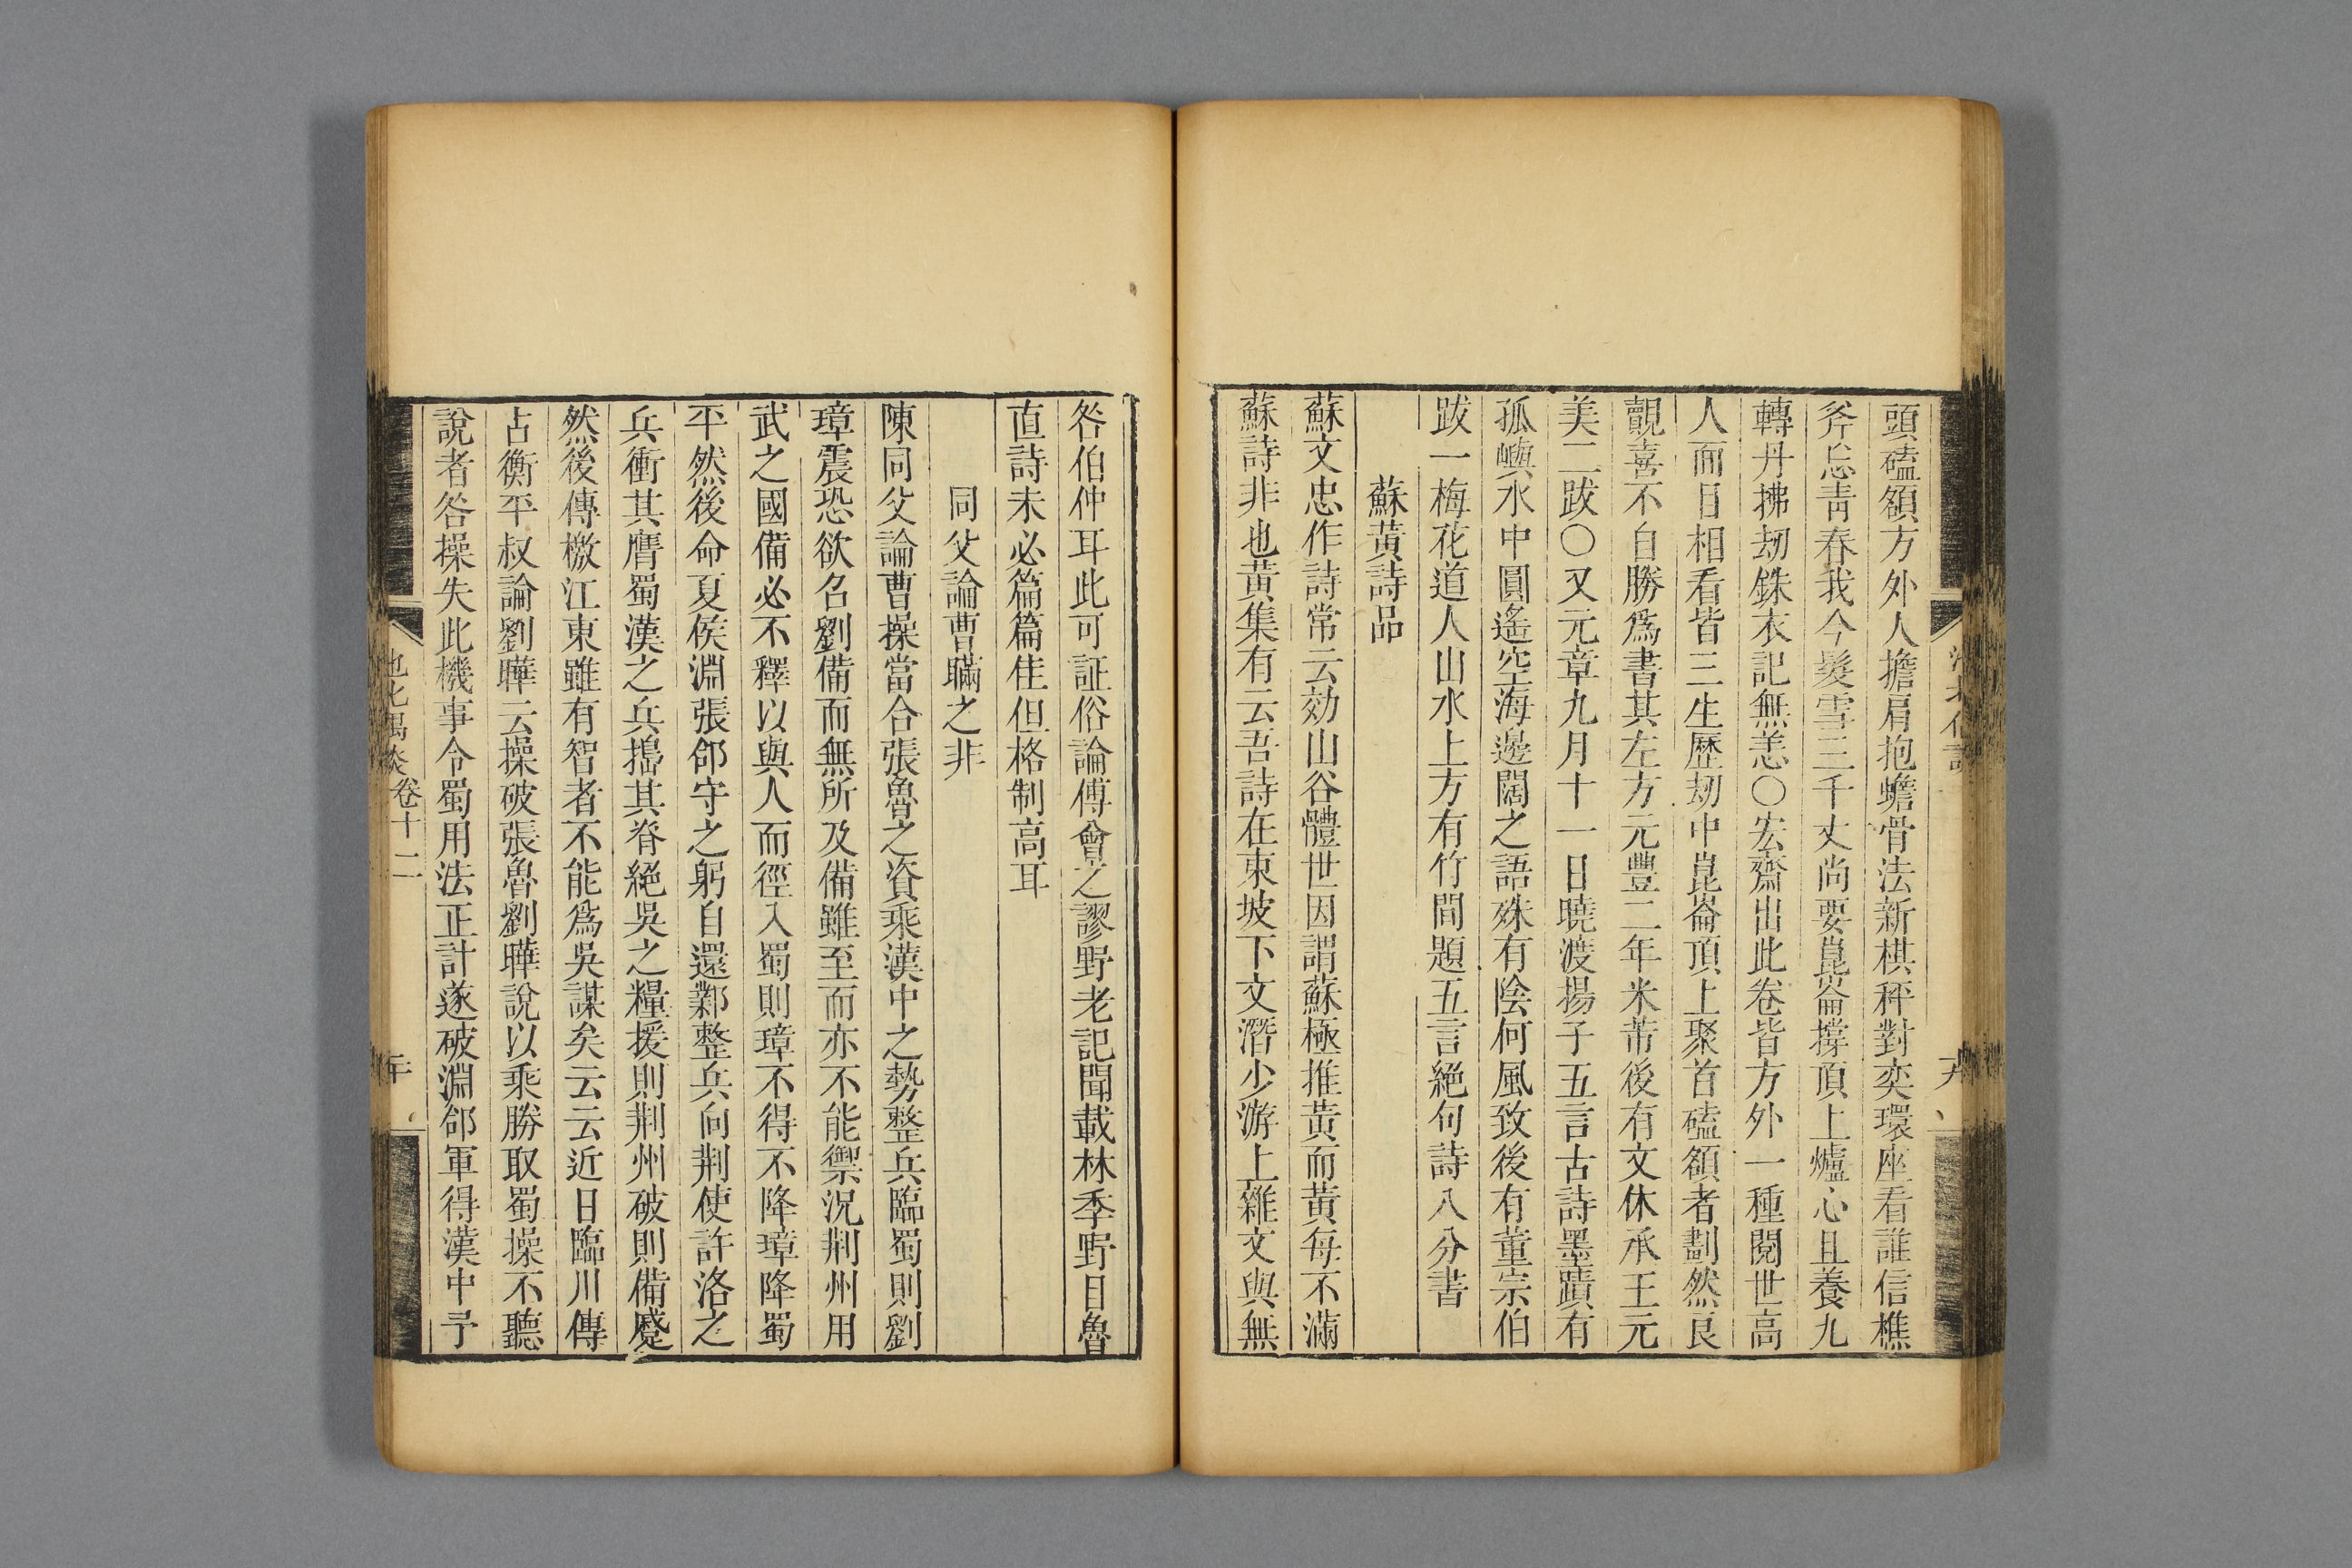 頭磕額方外人擔肩抱蟾骨法新棋秤對奕環座看誰信樵
斧忘靑春我今髮雪三千丈尚要崑崙撐頂上爐心且養九
轉丹拂刼銖衣記無恙○宏齋出此卷皆方外一種閱世高
人面目相看皆三生歷刼中崑崙頂上聚首磕額者劃然良
觀喜不自勝爲書其左方元豐二年米芾後有文休承王元
美二跋○又元章九月十一日曉渡揚子五言古詩墨蹟有
孤嶼水中圓遙空海邊闊之語殊有陰何風致後有董宗伯
跋一梅花道人山水上方有竹間題五言絕句詩八分書
蘇黃詩品
蘇文忠作詩常云効山谷體世因謂蘇極推黃而黃每不滿
蘇詩非也黃集有云吾詩在東坡下文潛少游上雜文與無
咎伯仲耳此可証俗論傅會之謬野老記聞載林季野目魯
直詩未必篇篇佳但格制高耳
同父論曹瞞之非
陳同父論曹操當合張魯之資乘漢中之勢整兵臨蜀則劉
璋震恐欲召劉備而無所及備雖至而亦不能禦況荆州用
武之國備必不釋以與人而徑入蜀則璋不得不降璋降蜀
平然後命夏侯淵張郃守之躬自還鄴整兵向荆使許洛之
兵衝其膺蜀漢之兵搗其脊絕吳之糧援則荆州破則備蹙
然後傳檄江東雖有智者不能爲吳謀矣云云近日臨川傳
占衡平叔論劉曄云操破張魯劉曄說以乘勝取蜀操不聽
說者咎操失此機事令蜀用法正計遂破淵郃軍得漢中予
卷十二